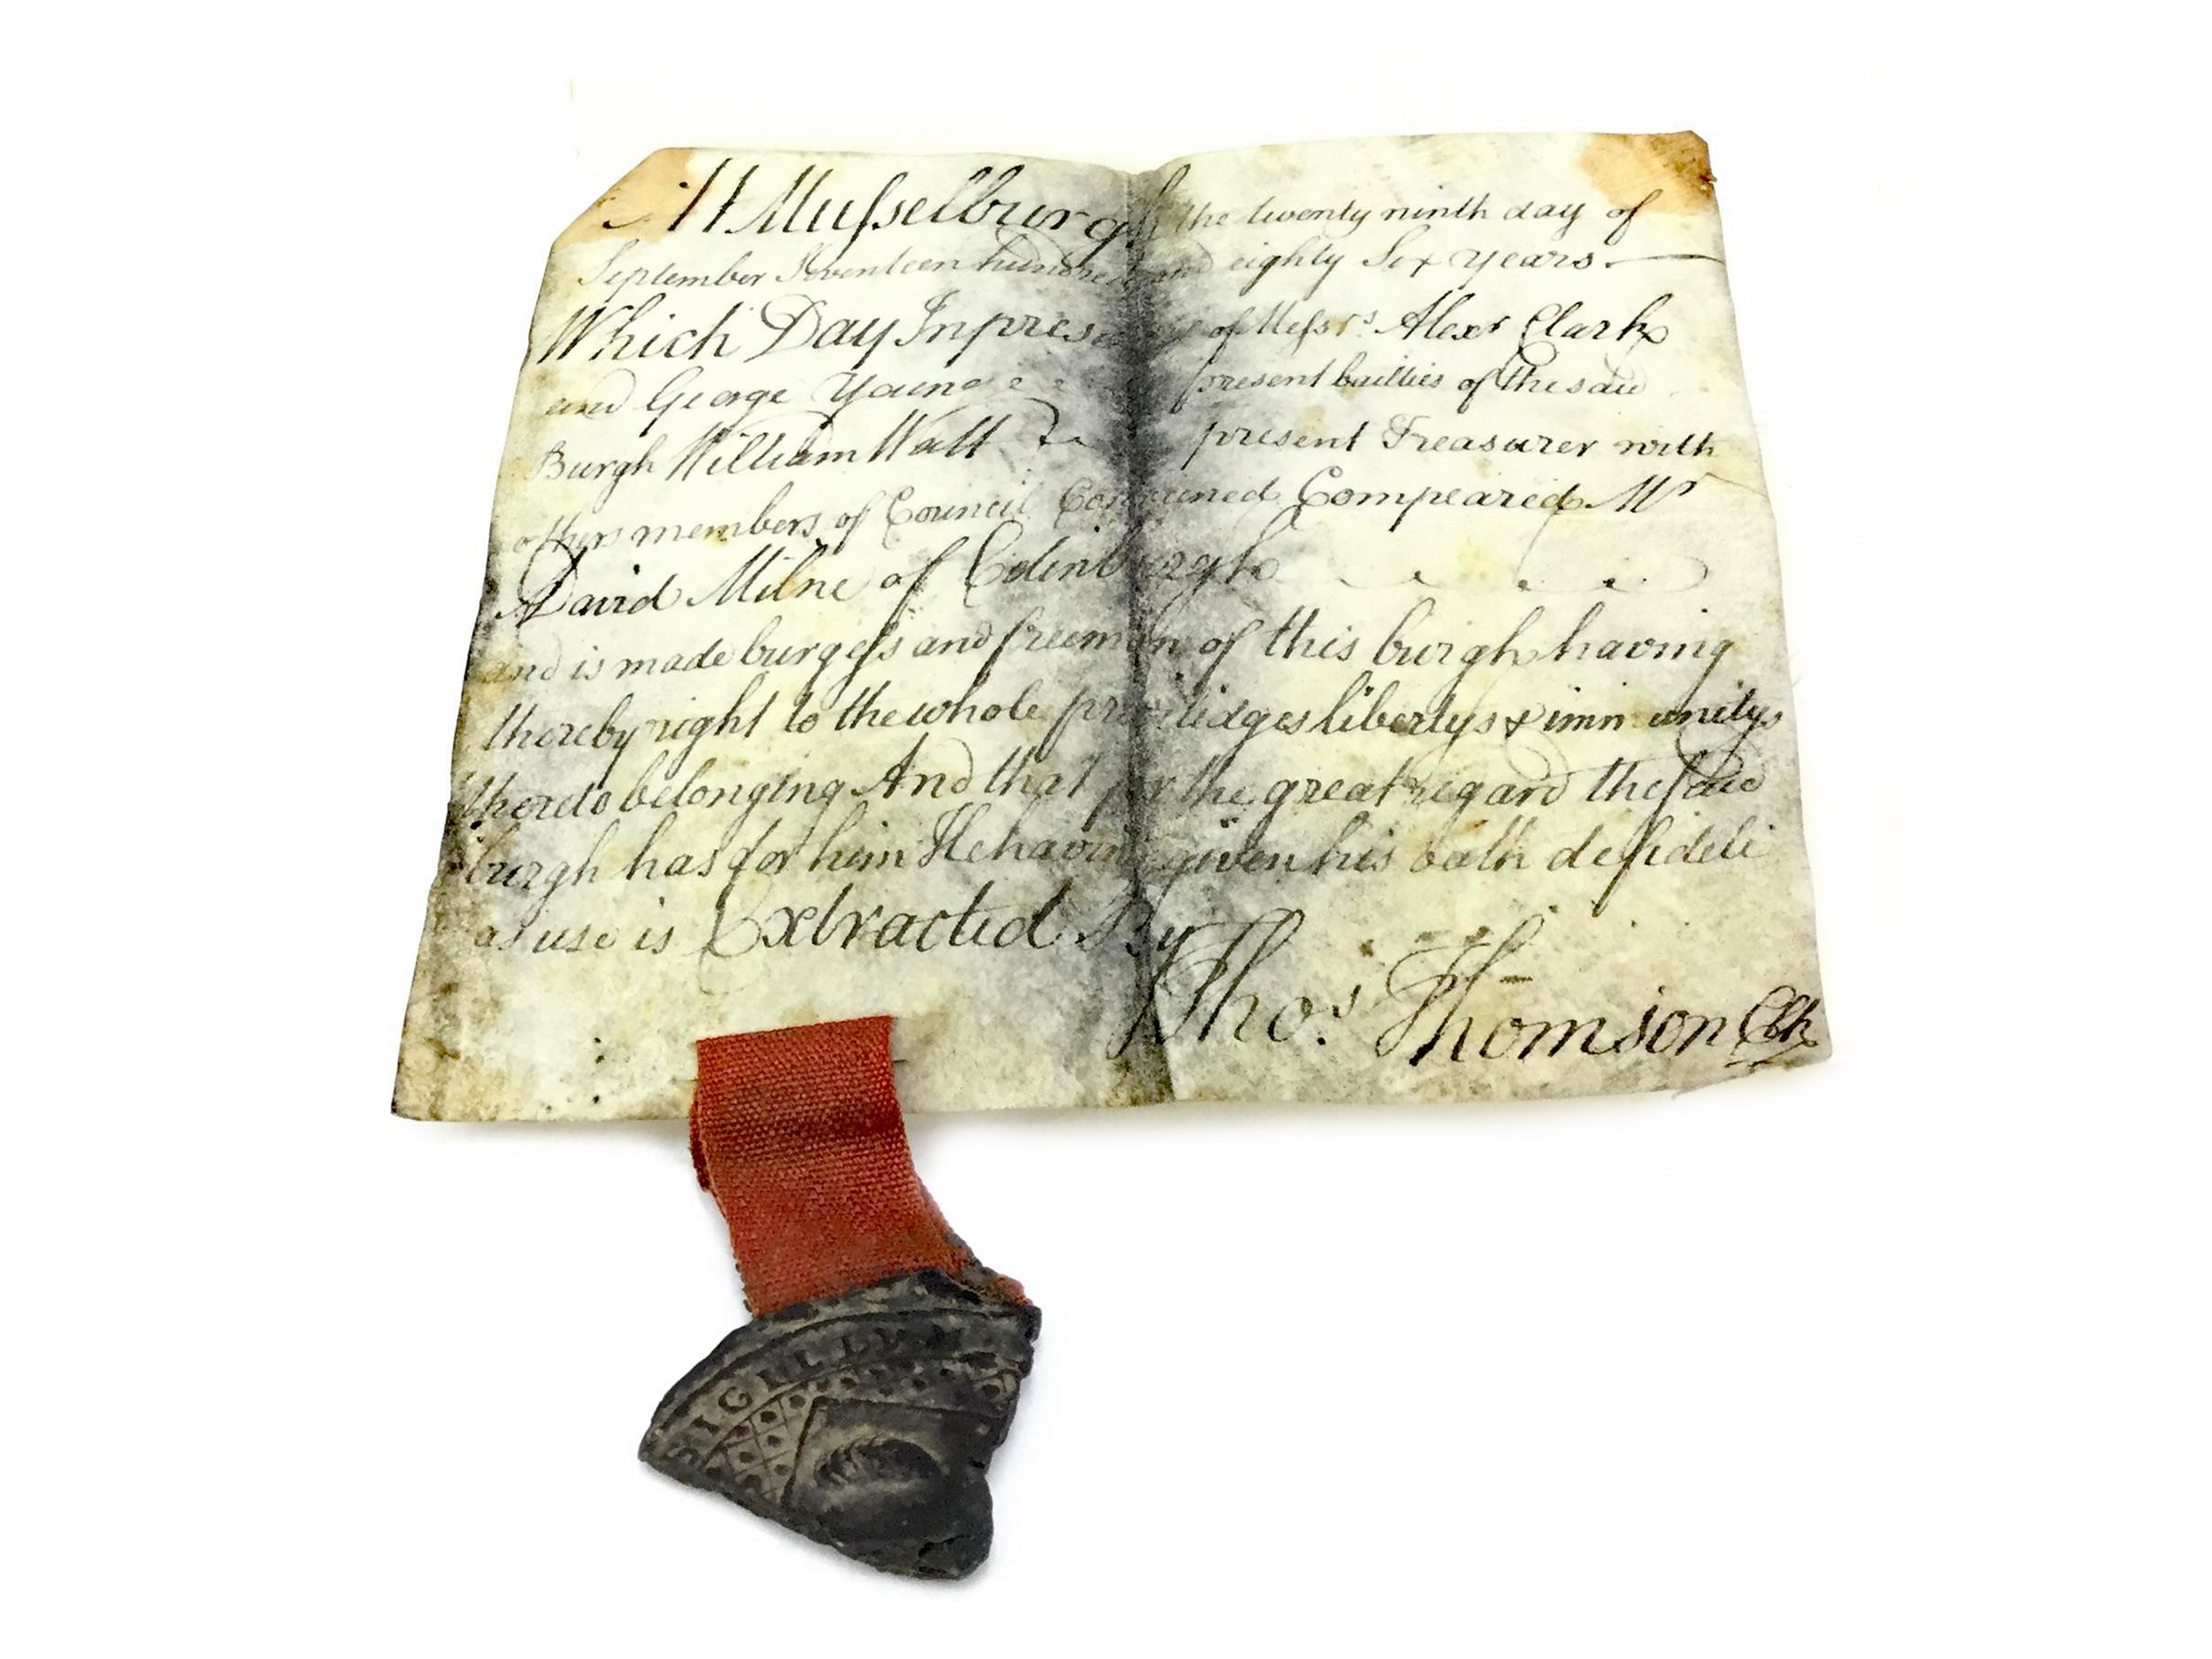 At Musselburgh the twenty ninth day of
September Seventeen hundred and eighty Six years.
Which Day In presence of Messrs. Alexr Clark
and George Young present baillies of the said
Burgh William Watt present Treasurer with
others members of Council Conveened Compeared Mr
David Milne of Edinburgh
and is made burgess and freeman of this burgh having
thereby right to the whole priviledges libertys & immunitys
thereto belonging And that for the great regard the said
burgh has for him He having given his oath defideli
as use is Extracted By
Thos. Thomson Clk
SIGILLUM